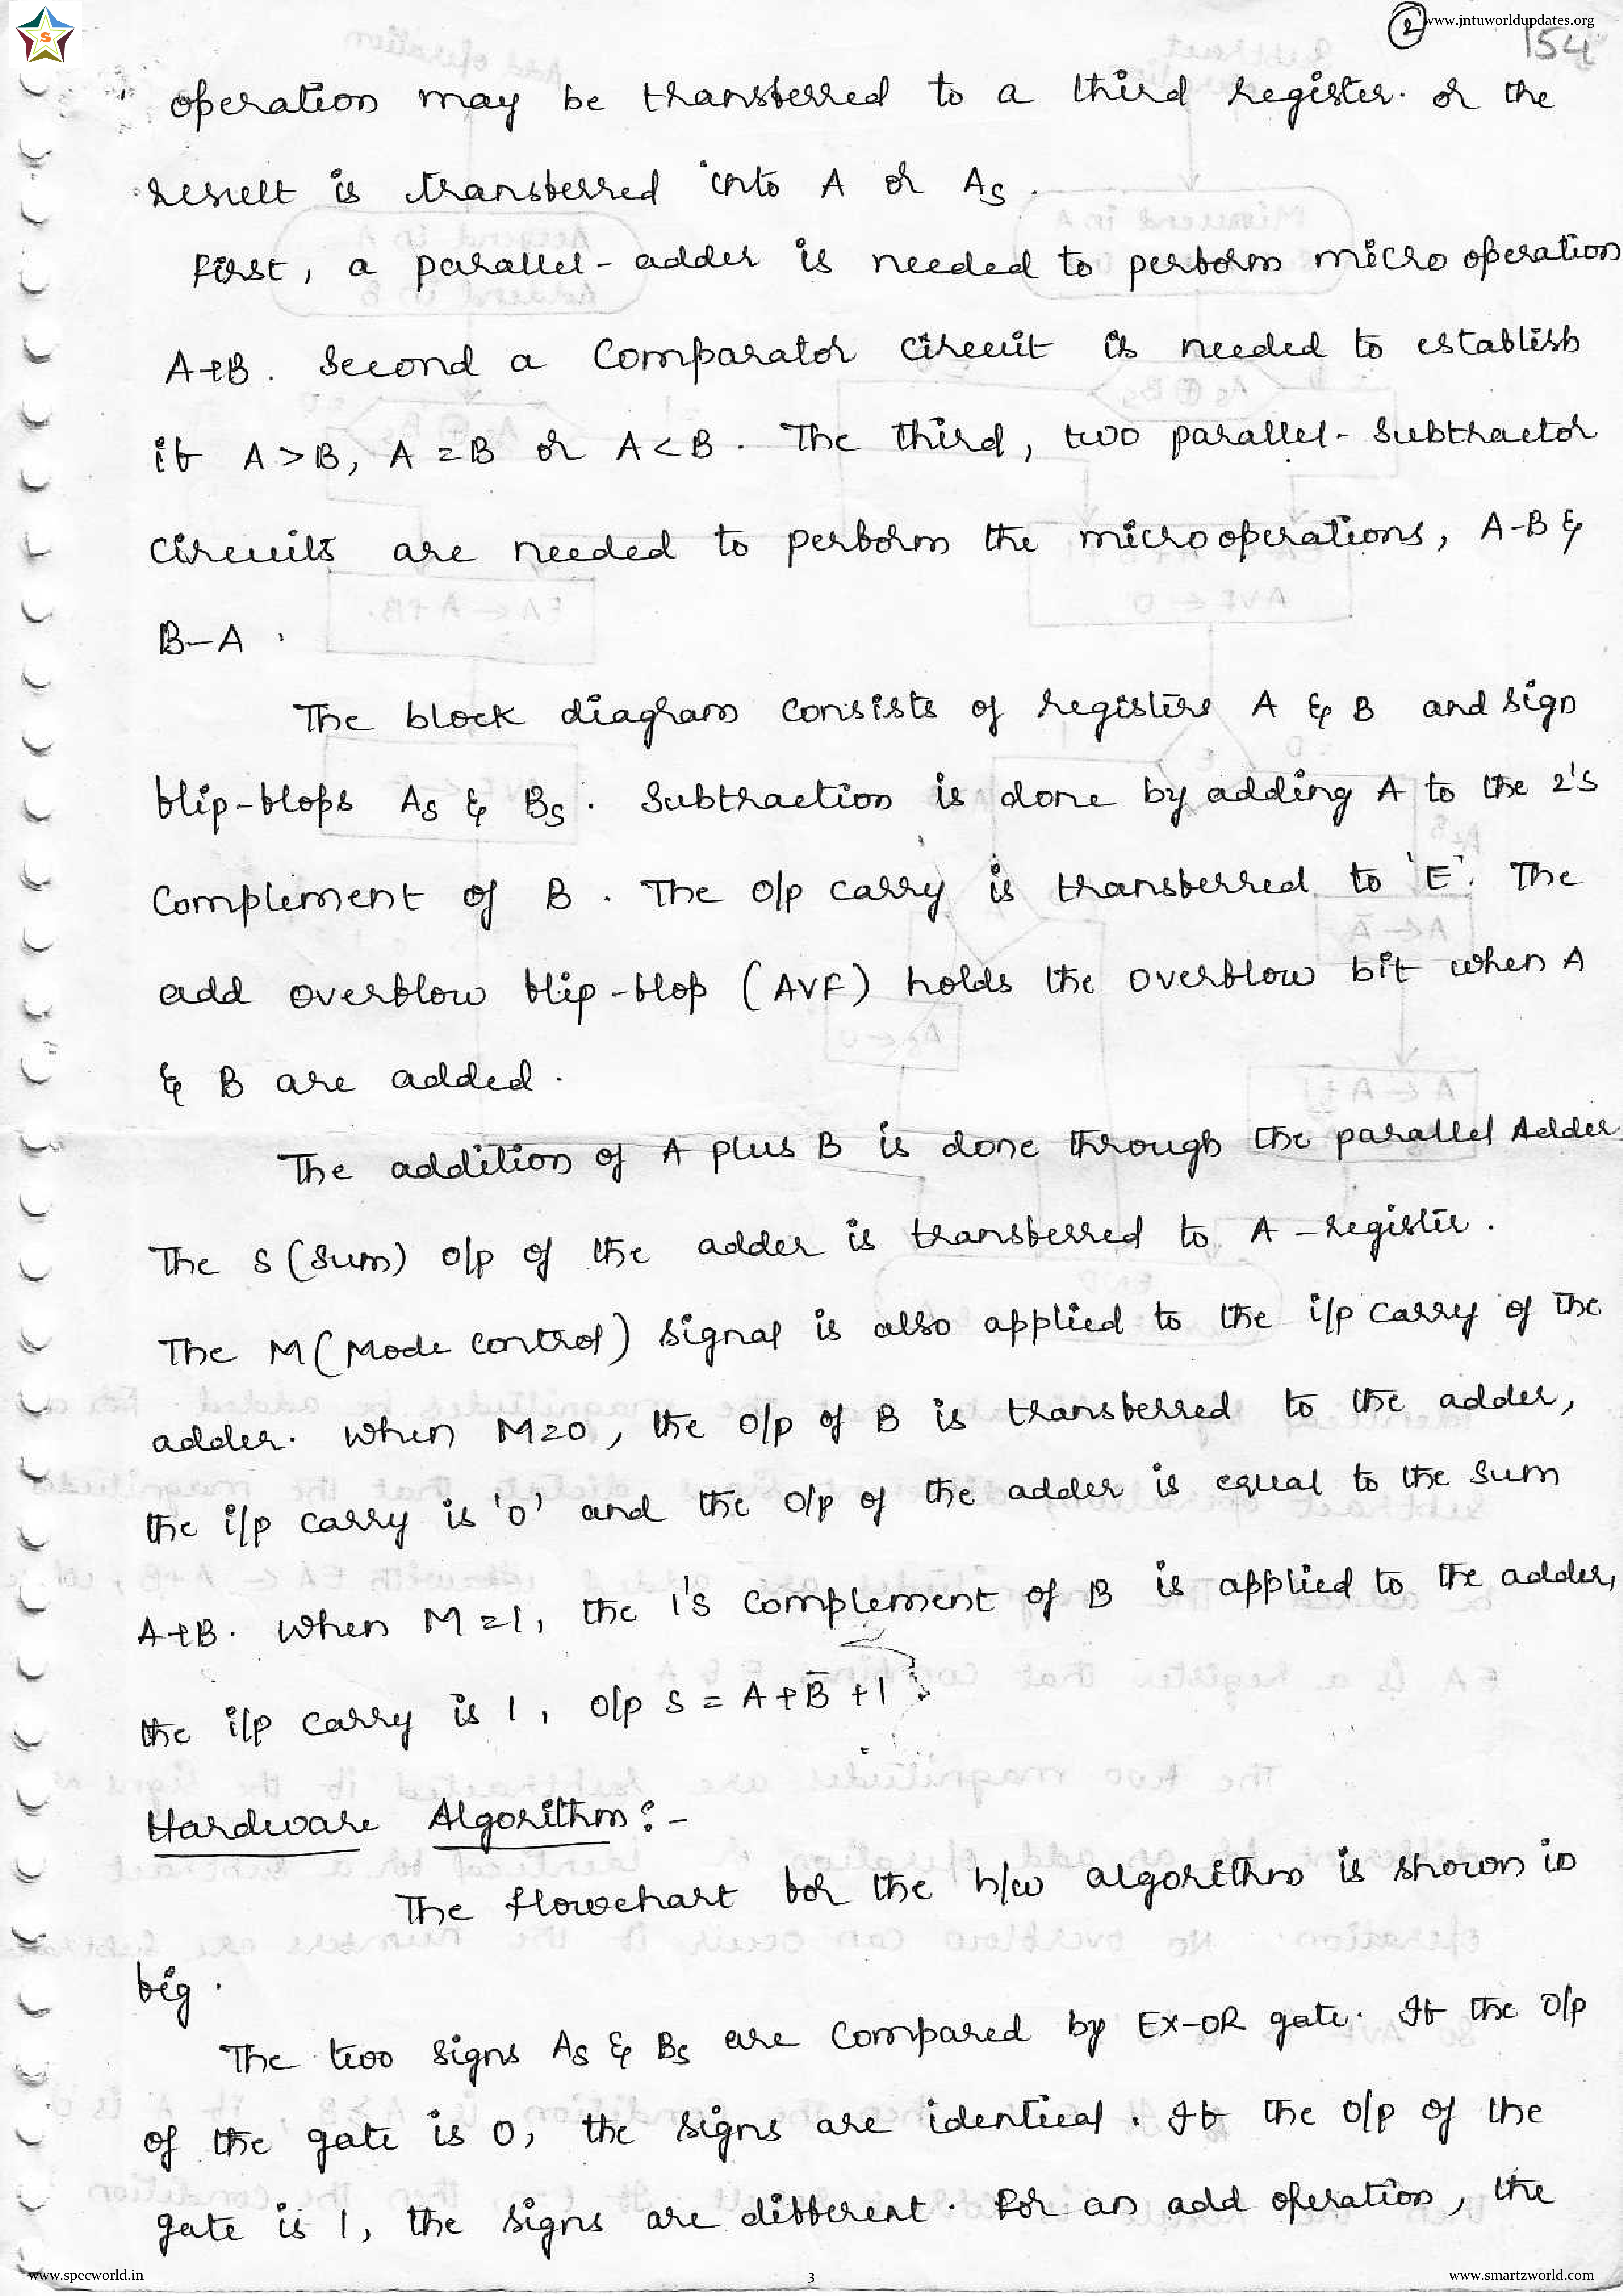 www.jntuworldupdates.org
2
154
operation may be transferred to a third register. or the
result is transferred into A or As.
First, a parallel-adder is needed to perform micro operation
A+B. Second a Comparator circuit is needed to establish
if A>B, A=B or A<B. The third, two parallel-Subtractor
circuits are needed to perform the microoperations, A-B &
B-A.
The block diagram consists of registers A & B and sign
flip-flops As & Bs. Subtraction is done by adding A to the 2's
Complement of B. The o/p carry is transferred to 'E'. The
add overflow flip-flop (AVF) holds the overflow bit when A
& B are added.
The addition of A plus B is done through the parallel Adder
The S (Sum) o/p of the adder is transferred to A-register.
The M (Mode control) signal is also applied to the i/p carry of the
adder. When M=0, the o/p of B is transferred to the adder,
the i/p carry is '0' and the o/p of the adder is equal to the sum
A+B. When M=1, the 1's complement of B is applied to the adder,
the i/p carry is 1, o/p S = A+B̅+1
Hardware Algorithm:-
The flowchart for the h/w algorithm is shown in
fig.
The two signs As & Bs are compared by EX-OR gate. If the o/p
of the gate is 0, the signs are identical. If the o/p of the
gate is 1, the signs are different. For an add operation, the
www.specworld.in
3
www.smartzworld.com